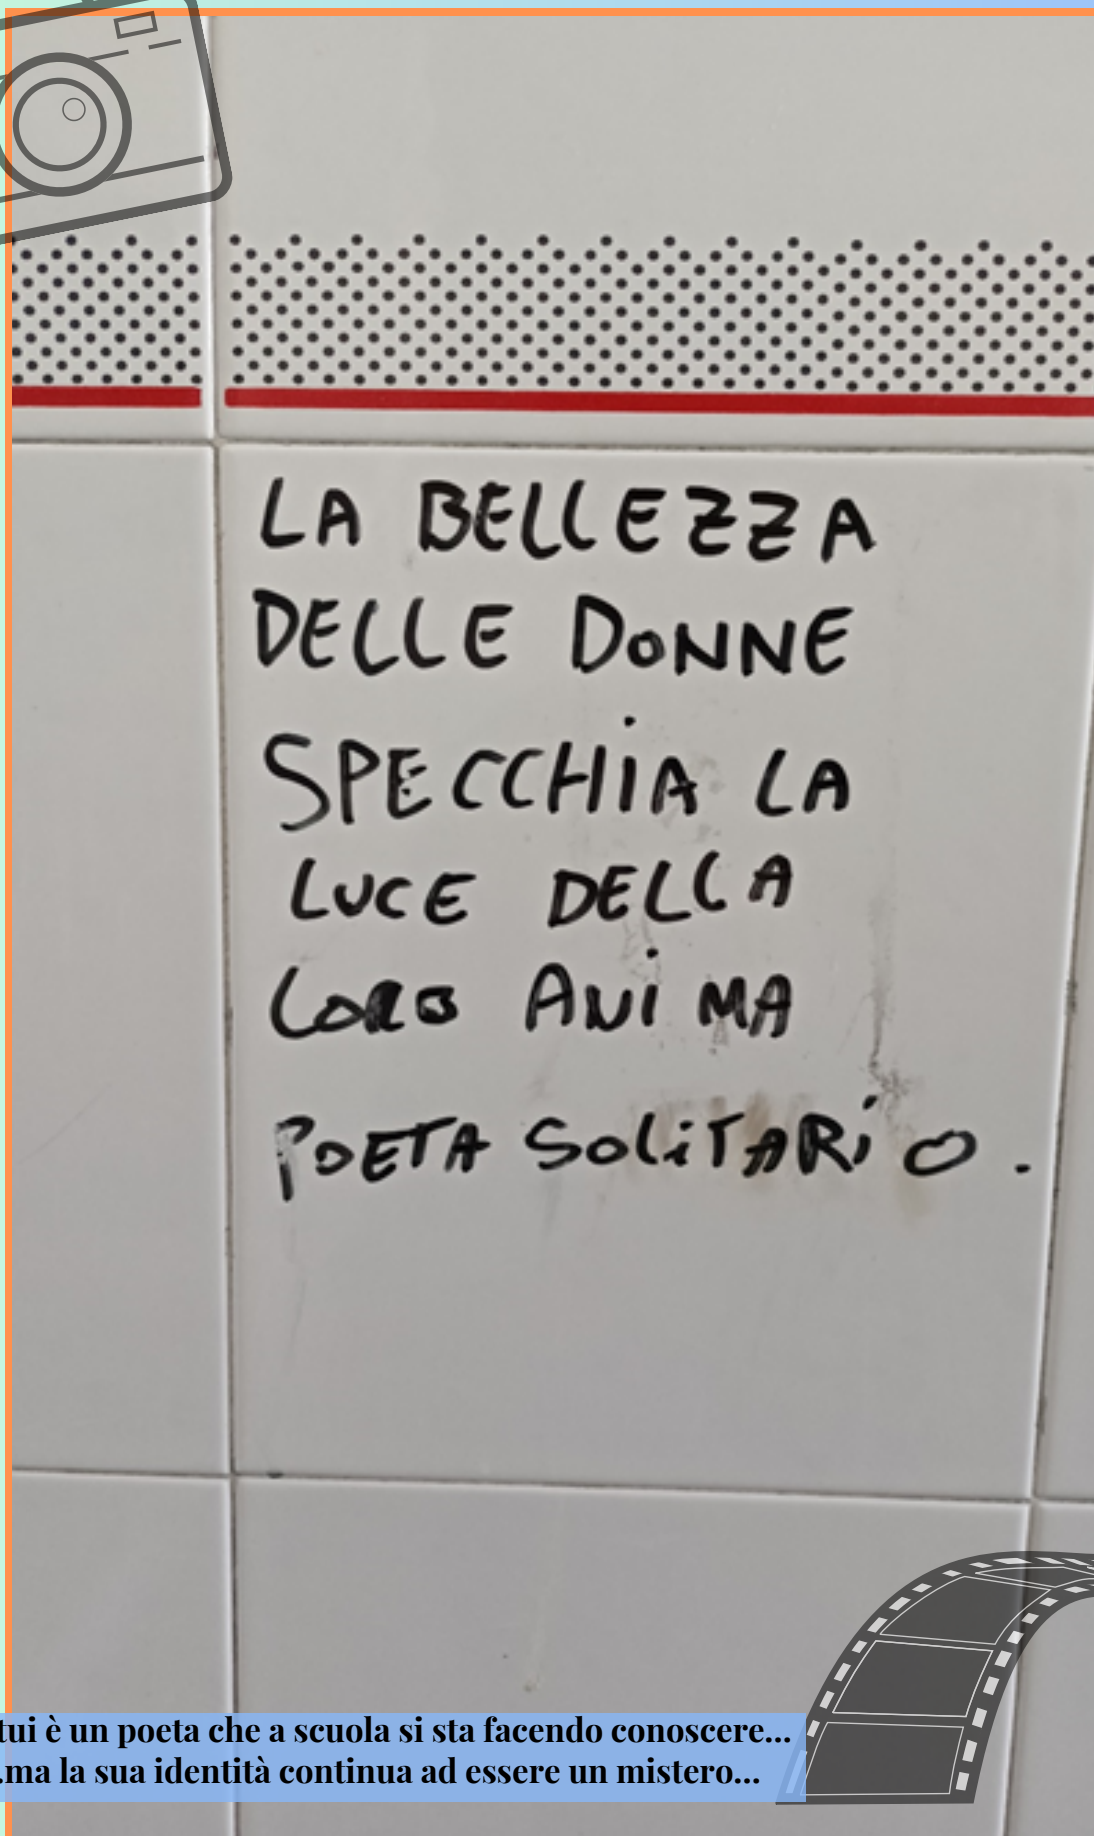 LA BELLEZZA
DELLE DONNE
SPECCHIA LA
LUCE DELLA
LORO ANIMA
POETA SOLITARIO.
tui è un poeta che a scuola si sta facendo conoscere...
.ma la sua identità continua ad essere un mistero...